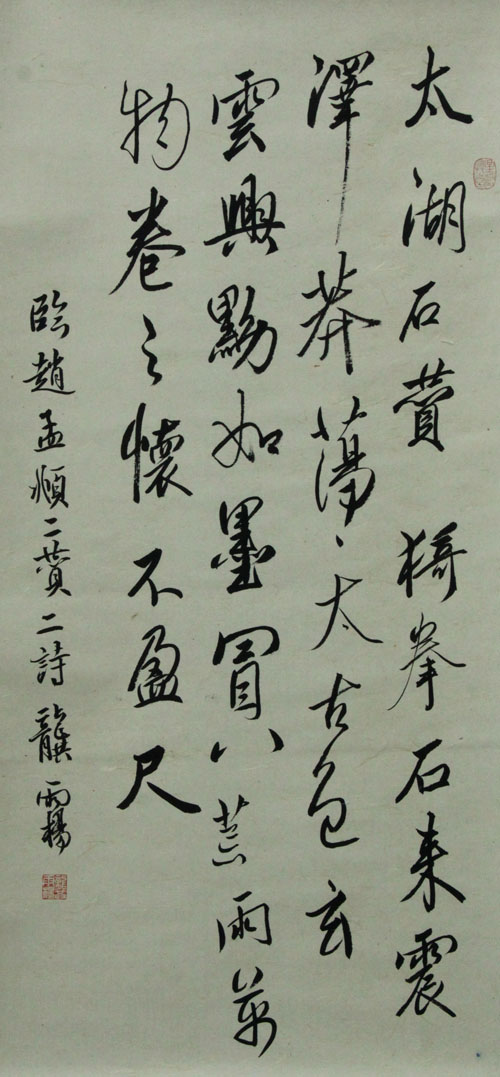 太湖石贊 猗拳石来震
澤莽蕩、太古色玄
雲興黝如墨冒八荒雨萬
物卷之懷不盈尺
臨趙孟頫二贊二詩 龔雨楊